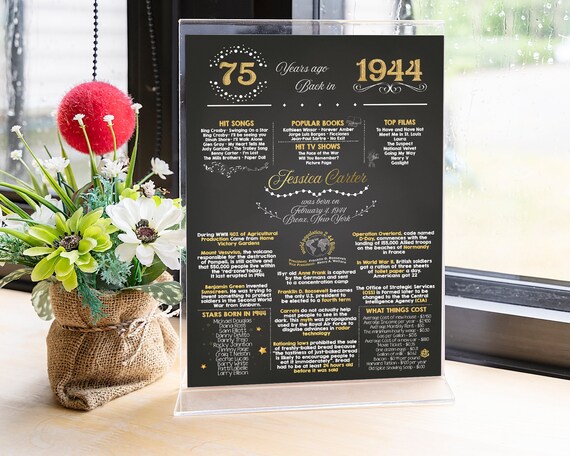 75
Years ago
Back in
1944
HIT SONGS
Bing Crosby - Swinging On a Star
Bing Crosby - I'll be seeing you
Dinah Shore - I'll Walk Alone
Glen Gray - My Heart Tells Me
Judy Garland - The Trolley Song
Benny Carter - I'm Lost
The Mills Brothers - Paper Doll
POPULAR BOOKS
Kathleen Winsor - Forever Amber
Jorge Luis Borges - Ficciones
Jean-Paul Sartre - No Exit
HIT TV SHOWS
The Face of the War
Will You Remember?
Picture Page
TOP FILMS
To Have and Have Not
Meet Me in St. Louis
Laura
The Suspect
National Velvet
Going My Way
Henry V
Gaslight
Jessica Carter
was born on
February 4, 1944
Bronx, New York
During WWII 40% of Agricultural
Production Came from Home
Victory Gardens
Mount Vesuvius, the volcano
responsible for the destruction
of Pompeii, is still active and
that 550,000 people live within
the 'red zone' today,
it last erupted in 1944
Benjamin Green invented
Sunscreen. He was trying to
invent something to protect
soldiers in the Second World
War
President: Franklin D. Roosevelt
15yr old Anne Frank is captured
by the Germans and sent
to a concentration camp
Franklin D. Roosevelt becomes
the only U.S. president to be
elected to a fourth term
Carrots do not actually help
most people see in the
dark. This myth was propaganda
used by the Royal Air Force to
disguise advances in radar
technology
Rationing laws prohibited the sale
of freshly-baked bread because
"the tastiness of just-baked bread
is likely to encourage people to
eat it immoderately". Bread
had to be at least 24 hours old
before it was sold
Operation Overlord, code named
D-Day, commences with the
landing of 155,000 Allied troops
on the beaches of Normandy
in France
In World War 2, British soldiers
got a ration of three sheets
of toilet paper a day.
Americans got 22
The Office of Strategic Services
(OSS) is formed later to be
changed to the Central
Intelligence Agency (CIA)
STARS BORN IN 1944
Michael Douglas
Diana Ross
Danny DeVito
Jimmy Page
Rocky Johnston
Jerry Springer
Craig T. Nelson
George Lucas
Barry White
Patti LaBelle
Larry Ellison
WHAT THINGS COST